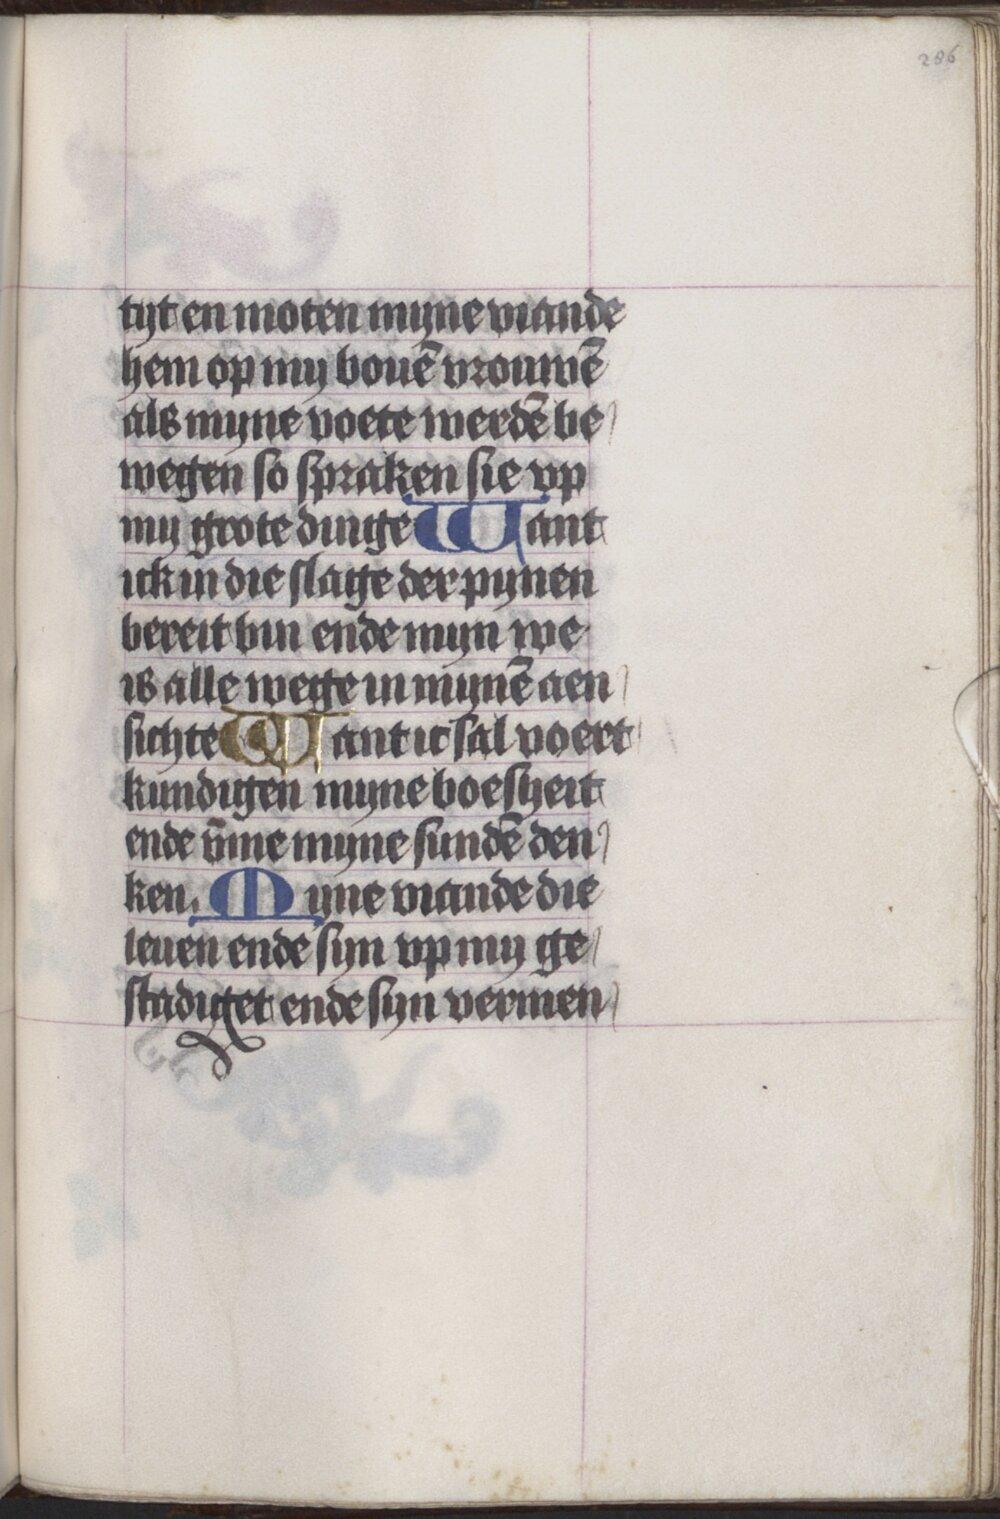 286
tyt en moten myne viande
hem op my bouē vrouwē
als myne voete werdē be
wegen so spraken sie vp
my grote dinge Want
ick in die slage der pynen
bereit bin ende myn we
is alle wege in mynē aen
sichte Want ic sal voert
kundigen myne boesheit
ende v̄me myne sundē den
ken. Myne viande die
leuen ende syn vp my ge
stadiget ende syn vermen